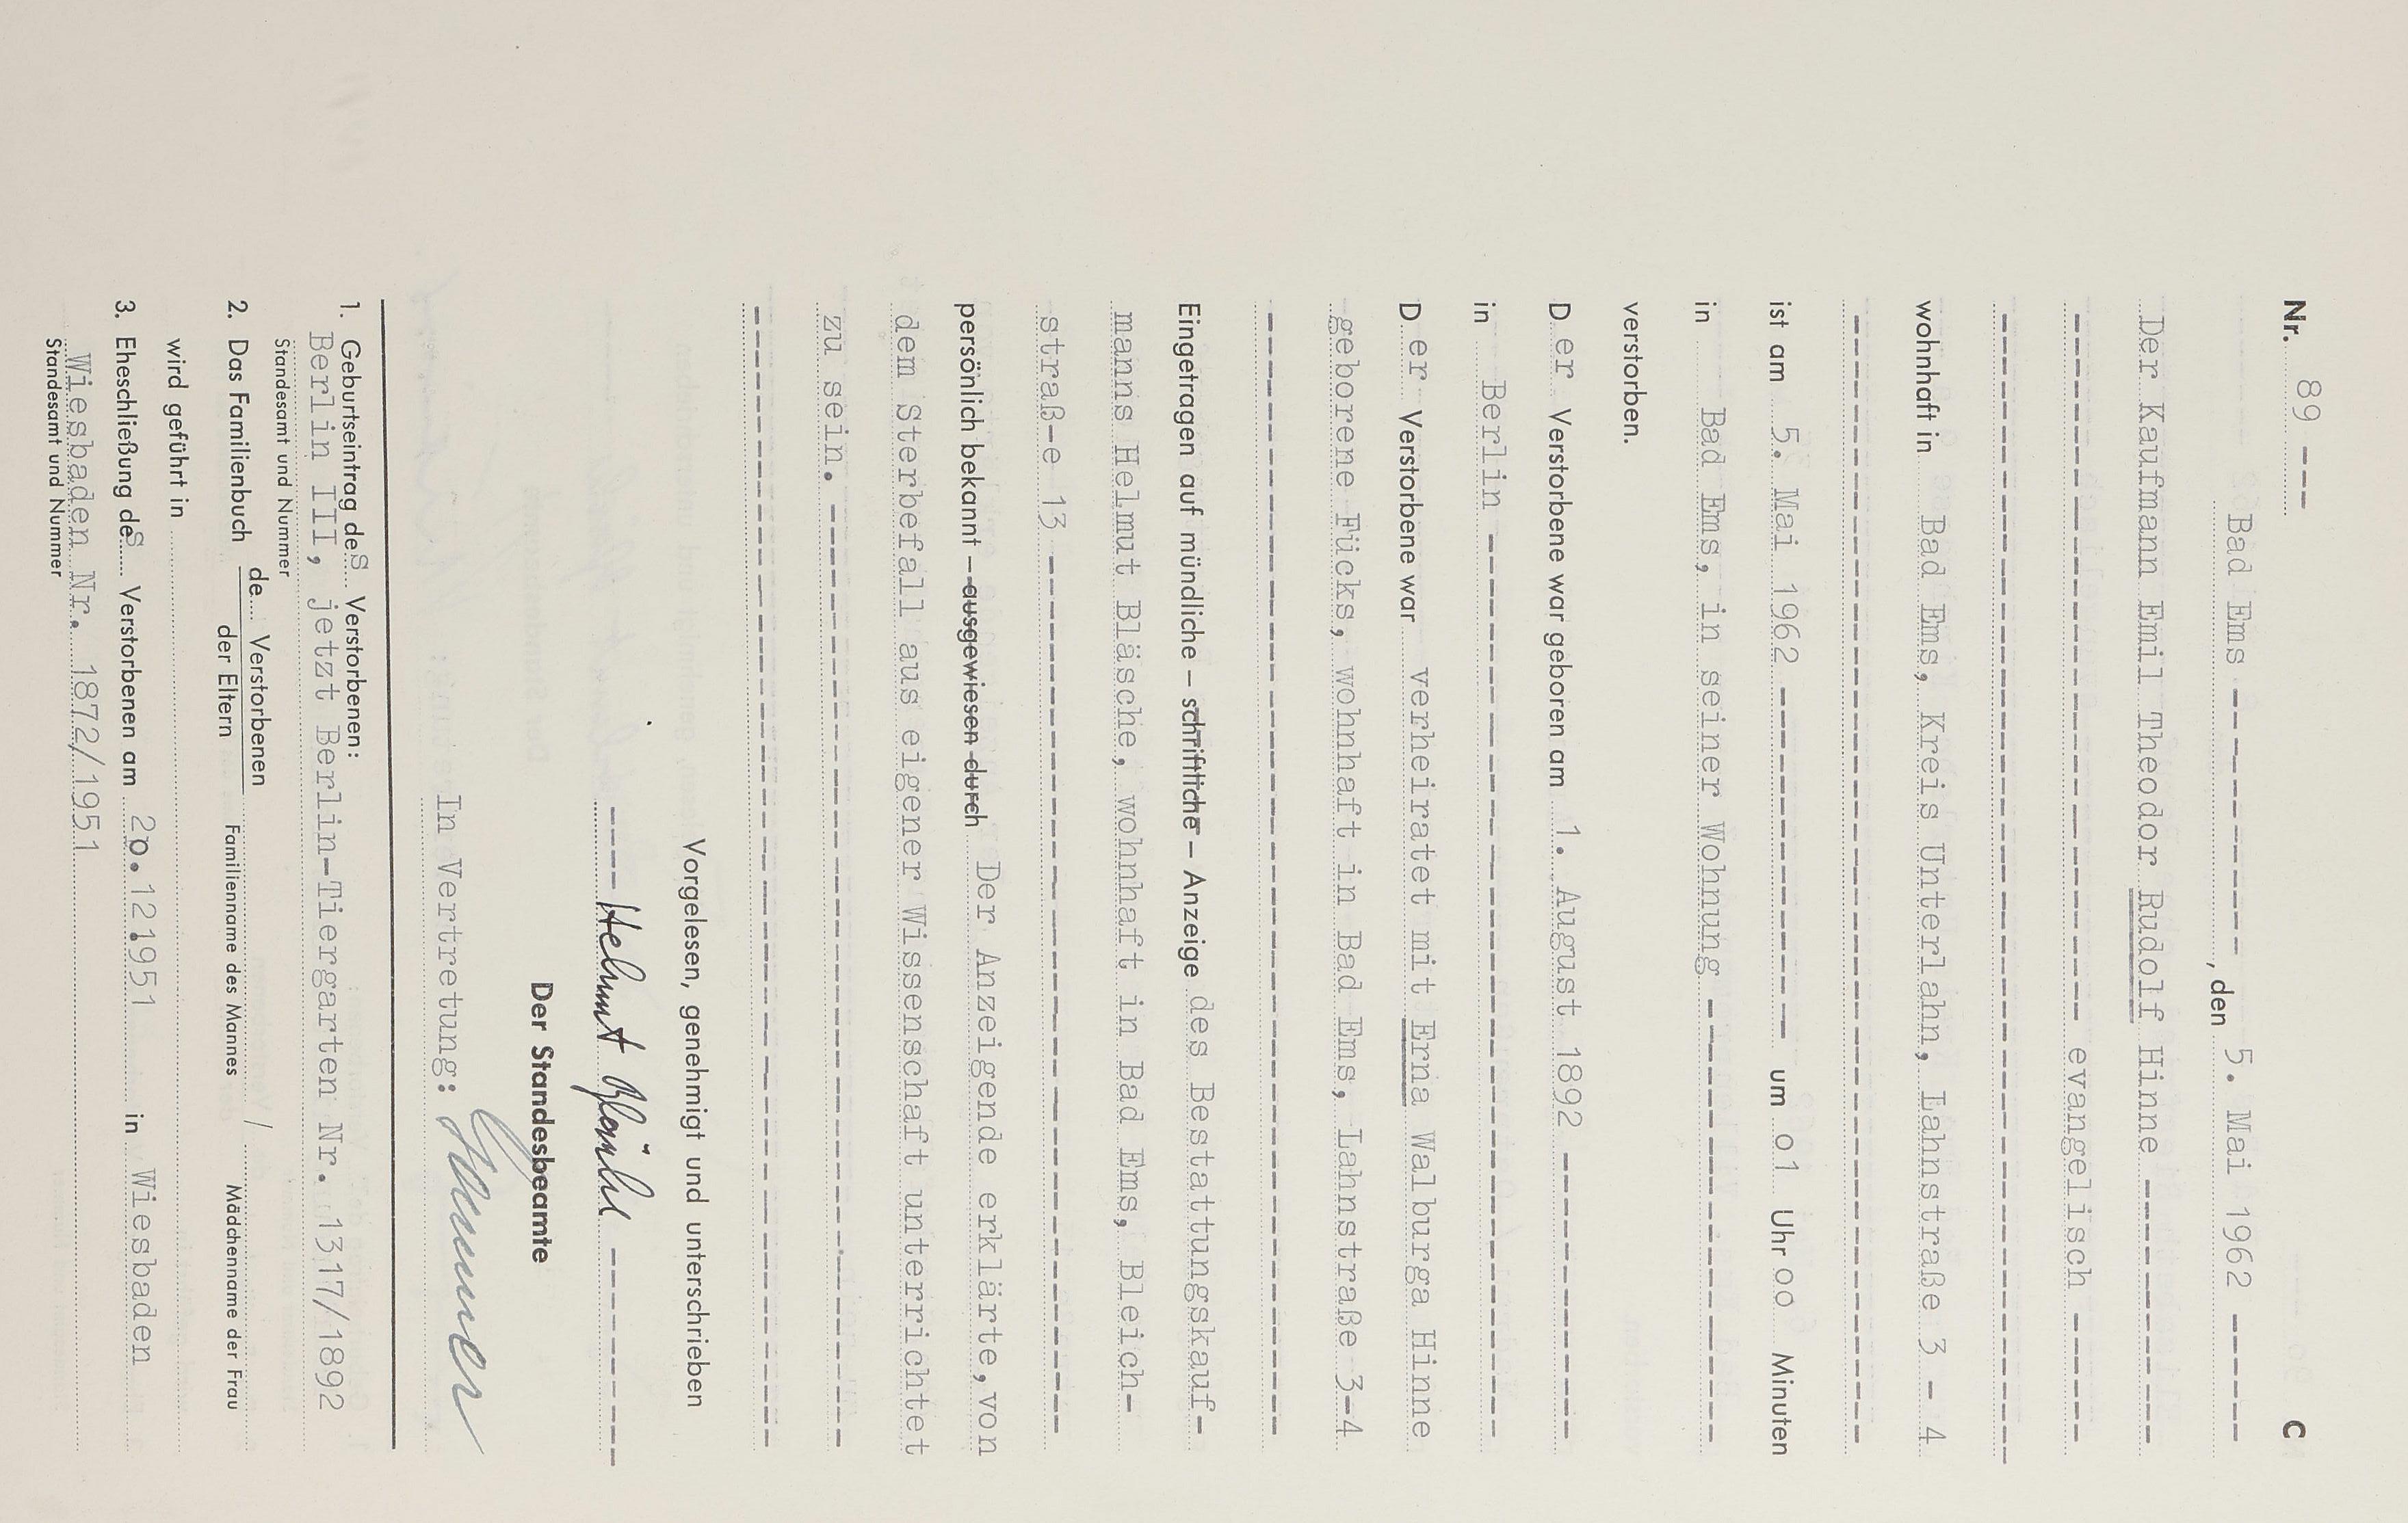 Nr. 89 --- C
Bad Ems ------------, den 5. Mai 1962 ------
Der Kaufmann Emil Theodor Rudolf Hinne ------------
------------------------------ evangelisch ------
------------------------------------------------
wohnhaft in Bad Ems, Kreis Unterlahn, Lahnstraße 3 - 4
------------------------------------------------
ist am 5. Mai 1962 ---------------- um o1 Uhr oo Minuten
in Bad Ems, in seiner Wohnung --------------------
verstorben.
D er Verstorbene war geboren am 1. August 1892 -------------
in Berlin ----------------------------------------
D er Verstorbene war verheiratet mit Erna Walburga Hinne
geborene Fücks, wohnhaft in Bad Ems, Lahnstraße 3-4
------------------------------------------------
Eingetragen auf mündliche – schriftliche – Anzeige des Bestattungskauf-
manns Helmut Bläsche, wohnhaft in Bad Ems, Bleich-
straß-e 13 --------------------------------------
persönlich bekannt – ausgewiesen durch Der Anzeigende erklärte, von
dem Sterbefall aus eigener Wissenschaft unterrichtet
zu sein. ----------------------------------------
------------------------------------------------
Vorgelesen, genehmigt und unterschrieben
---- Helmut Bläsche ----------
Der Standesbeamte
In Vertretung:
1. Geburtseintrag des Verstorbenen:
Berlin III, jetzt Berlin-Tiergarten Nr. 1317/1892
Standesamt und Nummer
2. Das Familienbuch de Verstorbenen der Eltern /
Familienname des Mannes Mädchenname der Frau
wird geführt in
3. Eheschließung des Verstorbenen am 20.12.1951 in Wiesbaden
Wiesbaden Nr. 1872/1951
Standesamt und Nummer